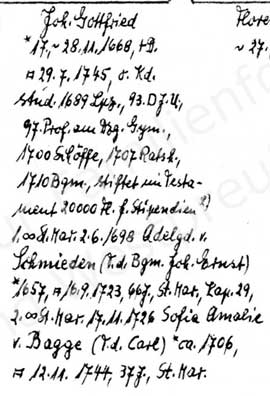 Joh. Gottfried
*17., ~ 28.11.1668, ev.
¤ 29.7.1745, o. Kd.
stud. 1689 Lpz., 93. D.J.U.,
97. Prof. am Dzg. Gym.,
1700 Schöffe, 1707 Ratsh.,
1710 Bgm., stiftet im Testa-
ment 20000 fl. f. Stipendien 2)
1. ∞ St. Mar. 2.6.1698 Adelgd. v.
Schmieden (T.d. Bgm. Joh. Ernst)
*1657, ¤ 16.9.1723, 66J., St. Mar., Kap. 29,
2. ∞ St. Mar. 17.11.1726 Sofia Amalie
v. Bagge (T.d. Carl) *ca. 1706,
¤ 12.11. 1744, 37J., St. Mar.
~ 27.